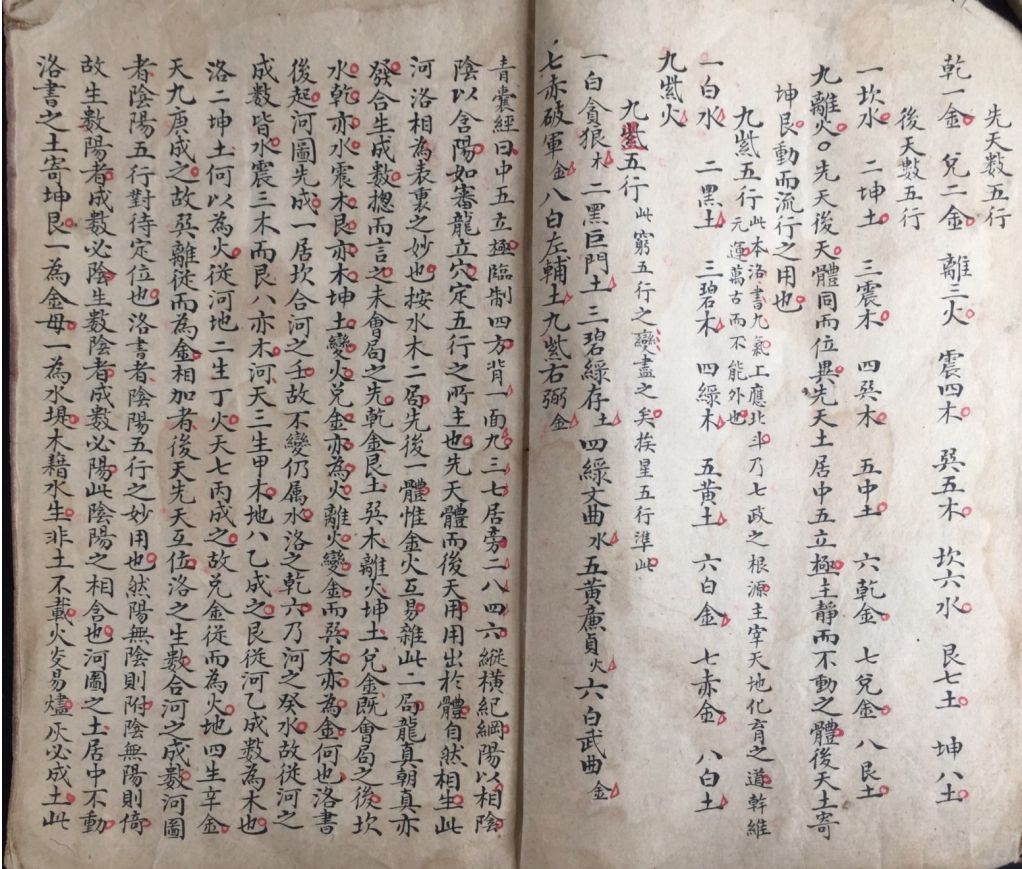 先天数五行
乾一金 兌二金 離三火 震四木 巽五木 坎六水 艮七土 坤八土
後天數五行
一坎水 二坤土 三震木 四巽木 五中土 六乾金 七兌金 八艮土
九離火○先天後天體同而位異先天土居中五立極主靜而不動之體後天土寄
坤艮動而流行之用也
九紫五行此本洛書九氣上應北斗乃七政之根源主宰天地化育之道幹維
元運萬古而不能外也
一白水 二黑土 三碧木 四綠木 五黃土 六白金 七赤金 八白土
九紫火
九紫五行此窮五行之變盡之矣挨星五行準此
一白貪狼木二黑巨門土三碧綠存土四綠文曲水五黃廉貞火六白武曲金
七赤破軍金八白左輔土九紫右弼金
青囊經曰中五立極臨制四方背一面九三七居旁二八四六縱橫紀綱陽以相陰
陰以含陽如審龍立穴定五行之所主也先天體而後天用用出於體自然相生此
河洛相為表裏之妙也按水木二局先後一體惟金火互易雜此二局龍真朝真亦
發合生成數揔而言之未會局之先乾金艮土巽木離火坤土兌金既會局之後坎
水乾亦水震木艮亦木坤土變火兌金亦為火離火變金而巽木亦為金何也洛書
後起河圖先成一居坎合河之壬故不變仍属水洛之乾六乃河之癸水故從河之
成数皆水震三木而艮八亦木河天三生甲木地八乙成之艮從河乙成数為木也
洛二坤土何以為火從河地二生丁火天七丙成之故兌金從而為火地四生辛金
天九庚成之故巽離從而為金相加者後天先天互位洛之生數合河之成數河圖
者陰陽五行對待定位也洛書者陰陽五行之妙用也然陽無陰則附陰無陽則倚
故生數陽者成數必陰生數陰者成數必陽此陰陽之相含也河圖之土居中不動
洛書之土寄坤艮一為金母一為水堤木藉水生非土不載火炎易燼灰必成土此